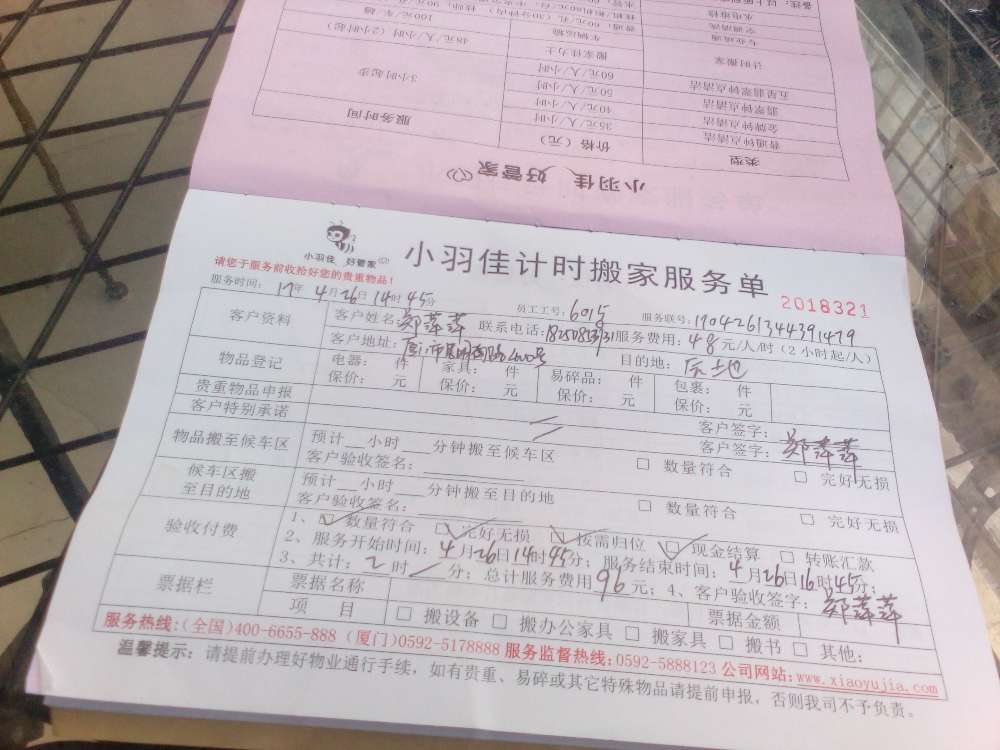 备注：以上所
水电维修
空调清洗
专业疏通
普通
60元/孔（30分钟内）
车辆运输
100元/车/趟
计时搬家
搬家佳力士
48元/人/小时（2小时起）
五星翡翠钟点清洁
60元/人/小时
翡翠钟点清洁
50元/人/小时
3小时起步
金牌钟点清洁
40元/人/小时
普通钟点清洁
35元/人/小时
类型
价格（元）
服务时间
小羽佳 好管家
小羽佳 好管家
小羽佳计时搬家服务单
2018321
请您于服务前收拾好您的贵重物品！
服务时间：17年4月26日14时45分 员工工号：6015 服务联号：1704261344391479
客户资料 客户姓名：郑萍萍 联系电话：18250813131 服务费用：48元/人/时（2小时起/人）
客户地址： 目的地：
物品登记 电器： 件 家具： 件 易碎品： 件 包裹： 件
保价： 元 保价： 元 保价： 元 保价： 元
贵重物品申报 客户签字：
客户特别承诺 客户签字：郑萍萍
物品搬至候车区 预计__小时___分钟搬至候车区 □ 数量符合 □ 完好无损
客户验收签名：
候车区搬至目的地 预计__小时___分钟搬至目的地 □ 数量符合 □ 完好无损
客户验收签名：
验收付费 1、☑ 数量符合 ☑ 完好无损 ☑ 按需归位 ☑ 现金结算 □ 转账汇款
2、服务开始时间：4月26日14时45分；服务结束时间：4月26日16时45分；
3、共计：2时/分；总计服务费用96元；4、客户验收签字：郑萍萍
票据栏 票据名称 票据金额
项 目 □ 搬设备 □ 搬办公家具 □ 搬家具 □ 搬书 □ 其他：
服务热线：(全国)400-6655-888 (厦门)0592-5178888 服务监督热线：0592-5888123 公司网站：www.xiaoyujia.com
温馨提示：请提前办理好物业通行手续，如有贵重、易碎或其它特殊物品请提前申报，否则我司不予负责。